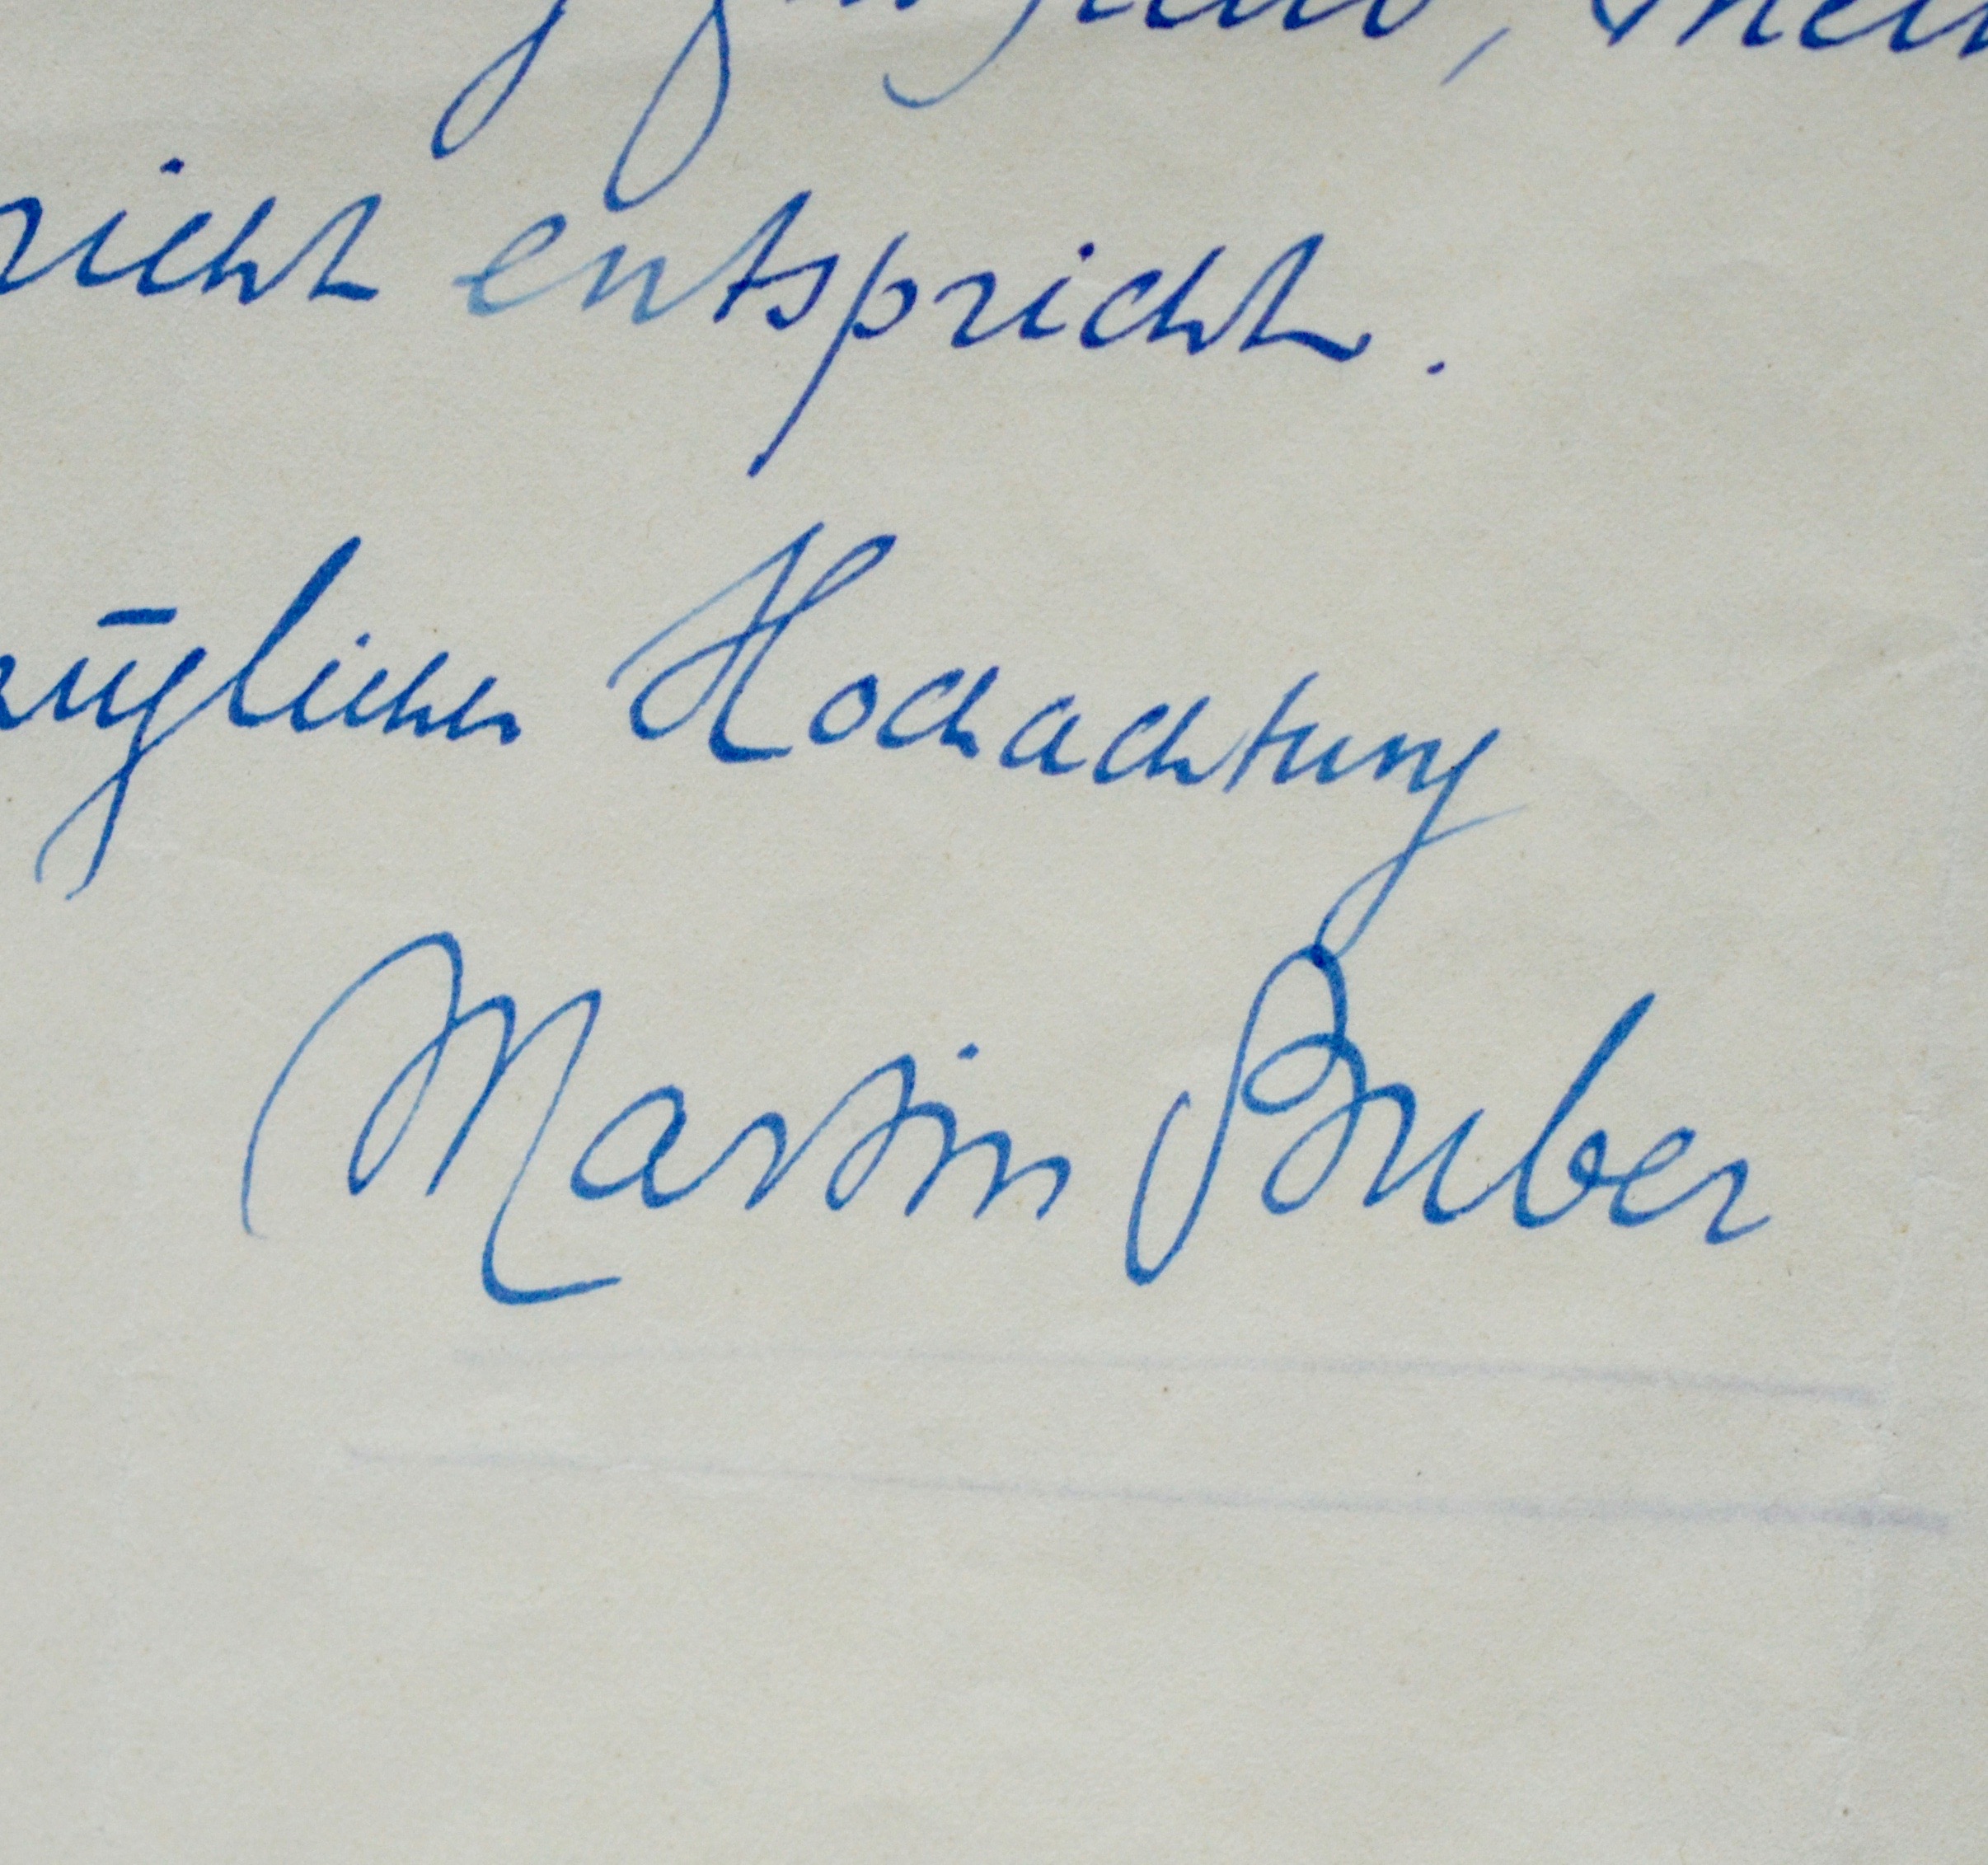 nicht entspricht.
züglicher Hochachtung
Martin Buber